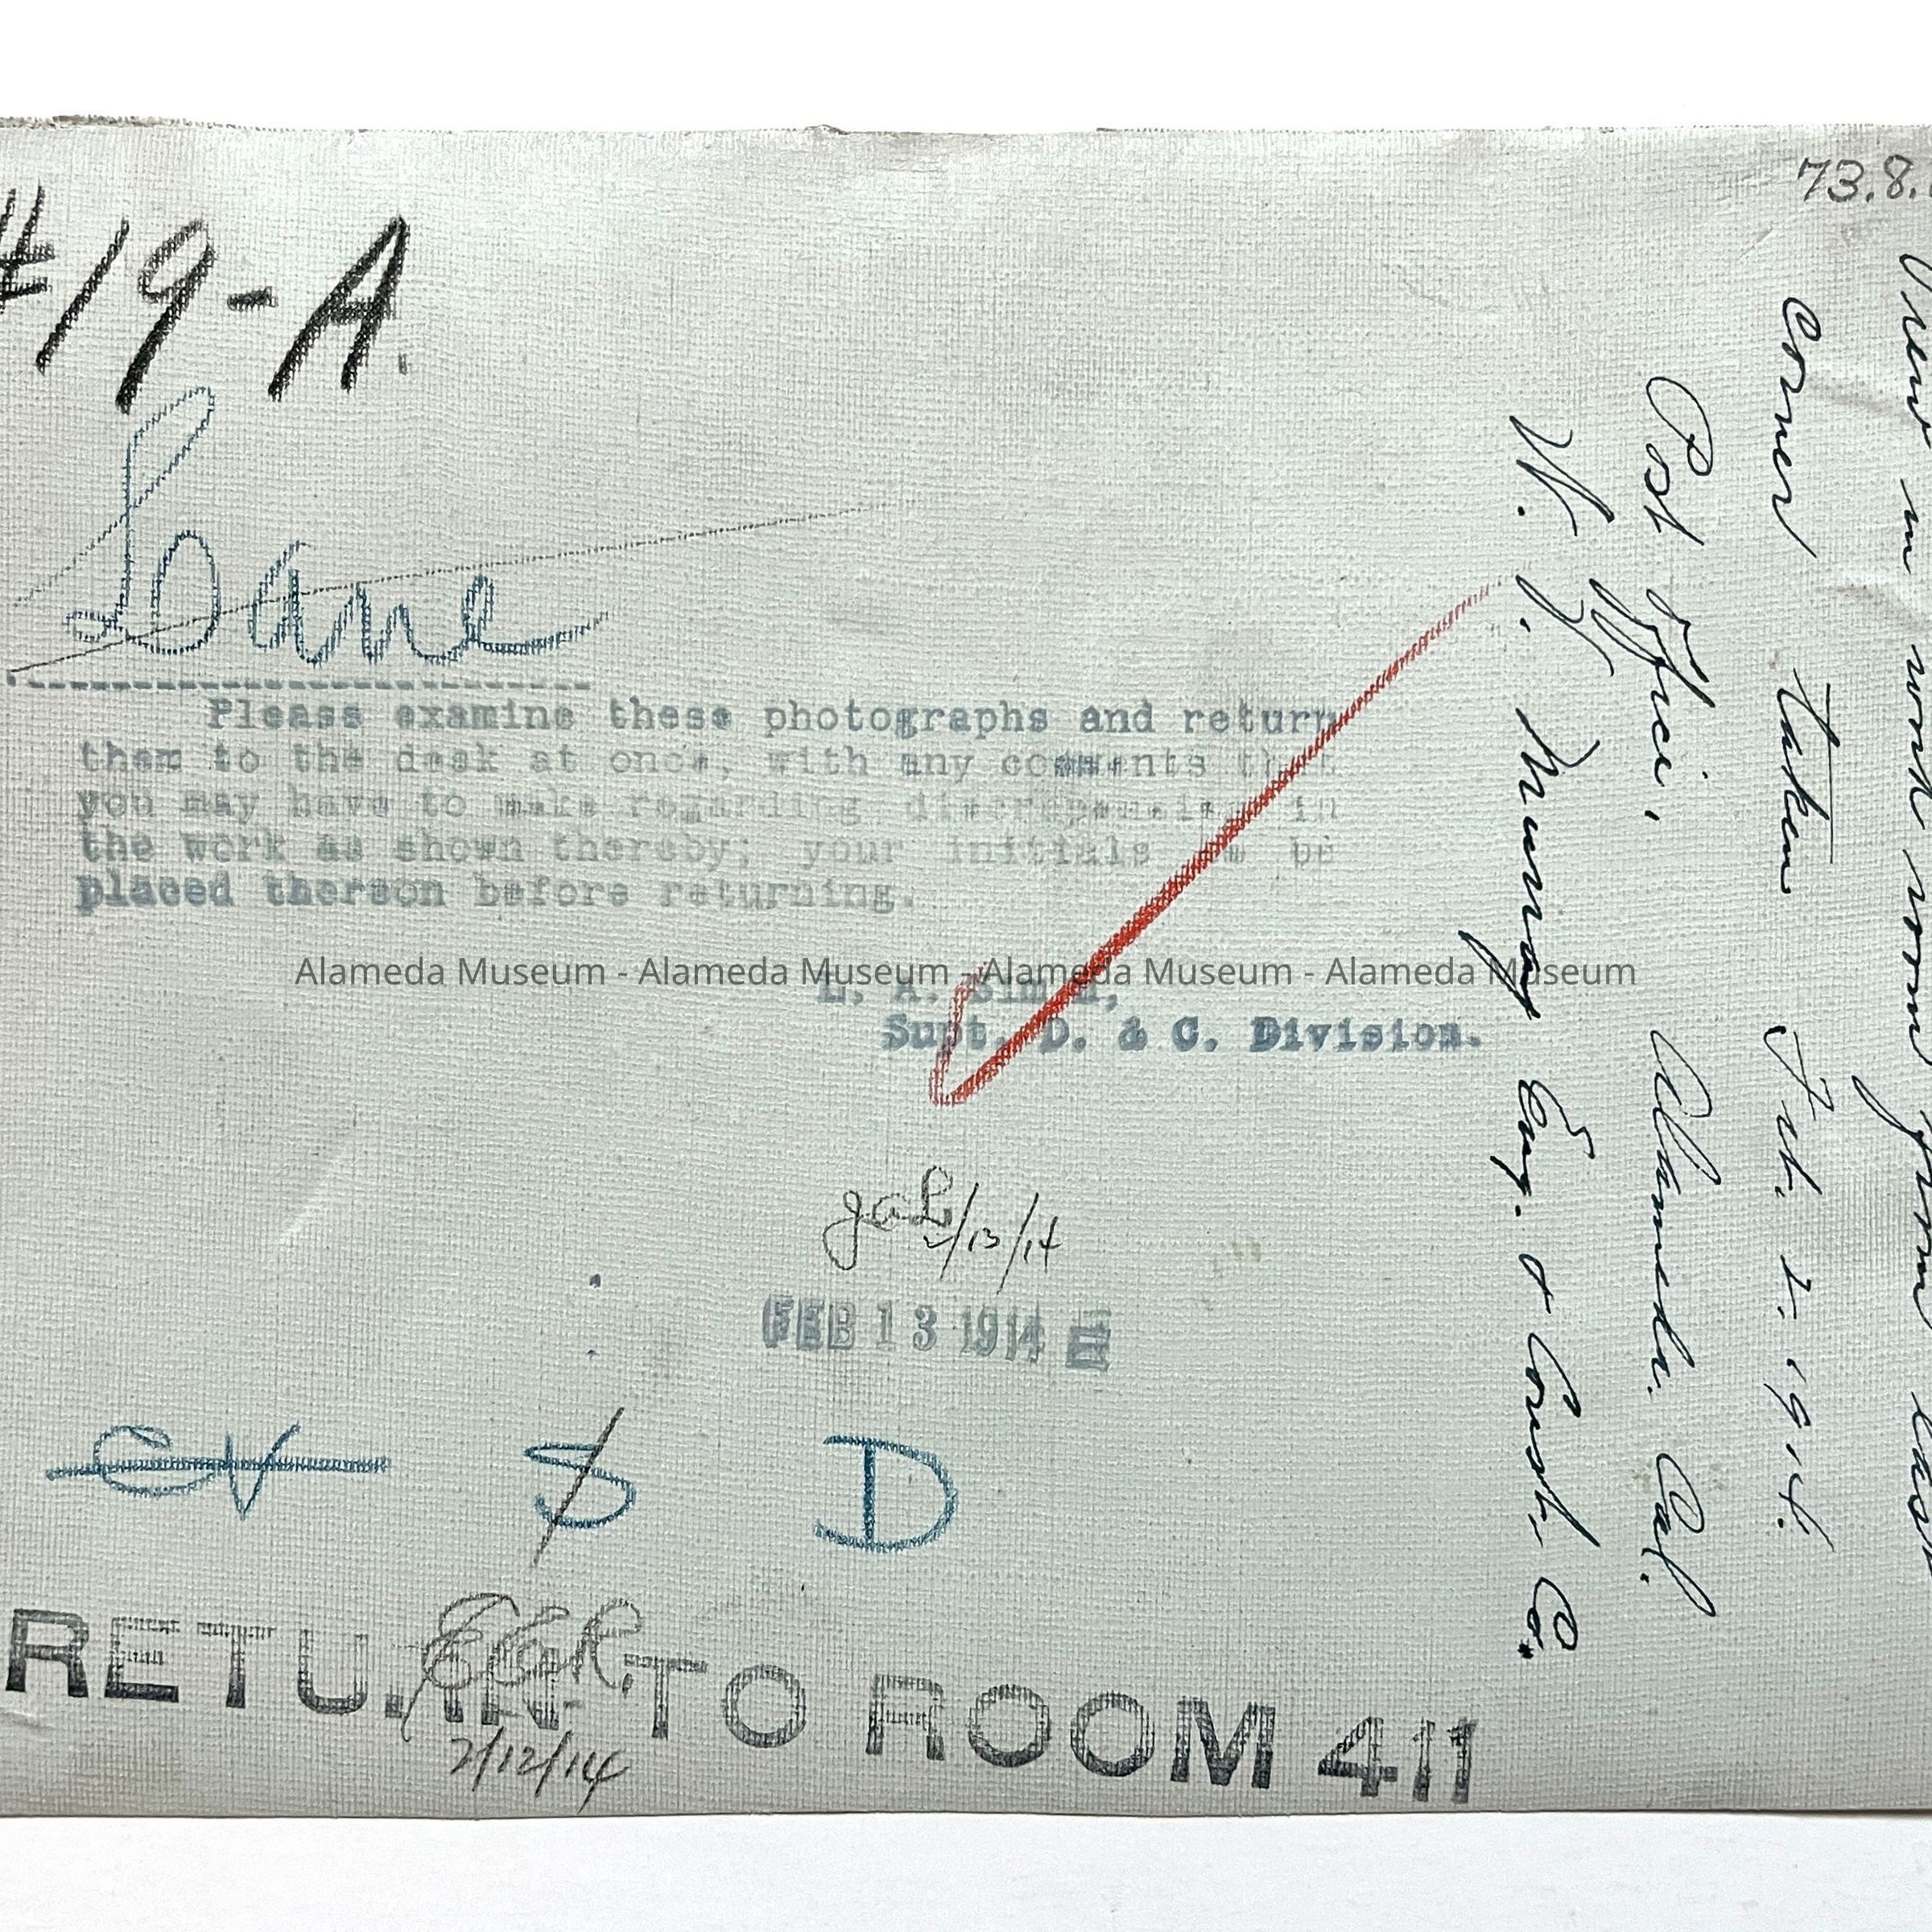 73.8.
#19-A.
Lane
Please examine these photographs and return
them to the desk at once, with any comments that
you may have to make regarding discrepancies in
the work as shown thereby; your initials to be
placed thereon before returning.
L. A. Simon,
Supt. D. & C. Division.
2/13/14
FEB 13 1914
S D
RETURN TO ROOM 411
2/12/14
View in work room from east
corner taken Feb. 1. 1914.
Post Office, Alameda. Cal.
Murray Eng. & Const. Co.
Alameda Museum - Alameda Museum - Alameda Museum - Alameda Museum